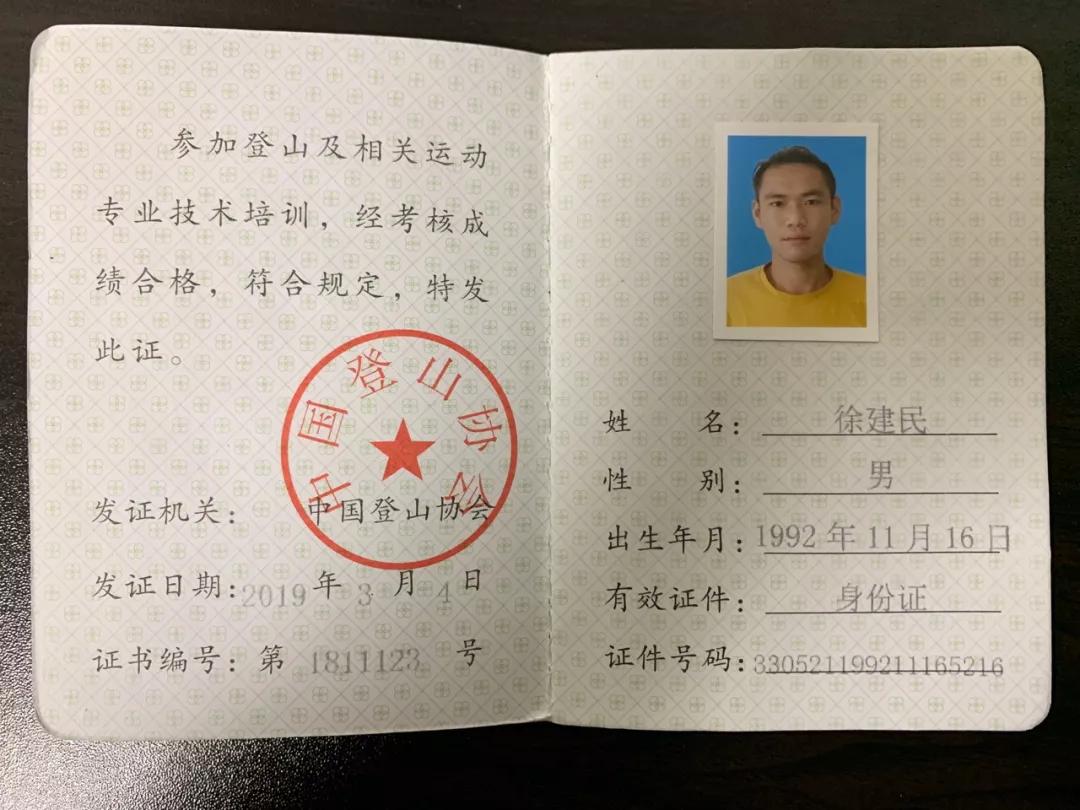 参加登山及相关运动
专业技术培训，经考核成
绩合格，符合规定，特发
此证。
中国登山协会
发证机关：中国登山协会
发证日期：2019年3月4日
证书编号：第1811123号
姓名：徐建民
性别：男
出生年月：1992年11月16日
有效证件：身份证
证件号码：330521199211165216